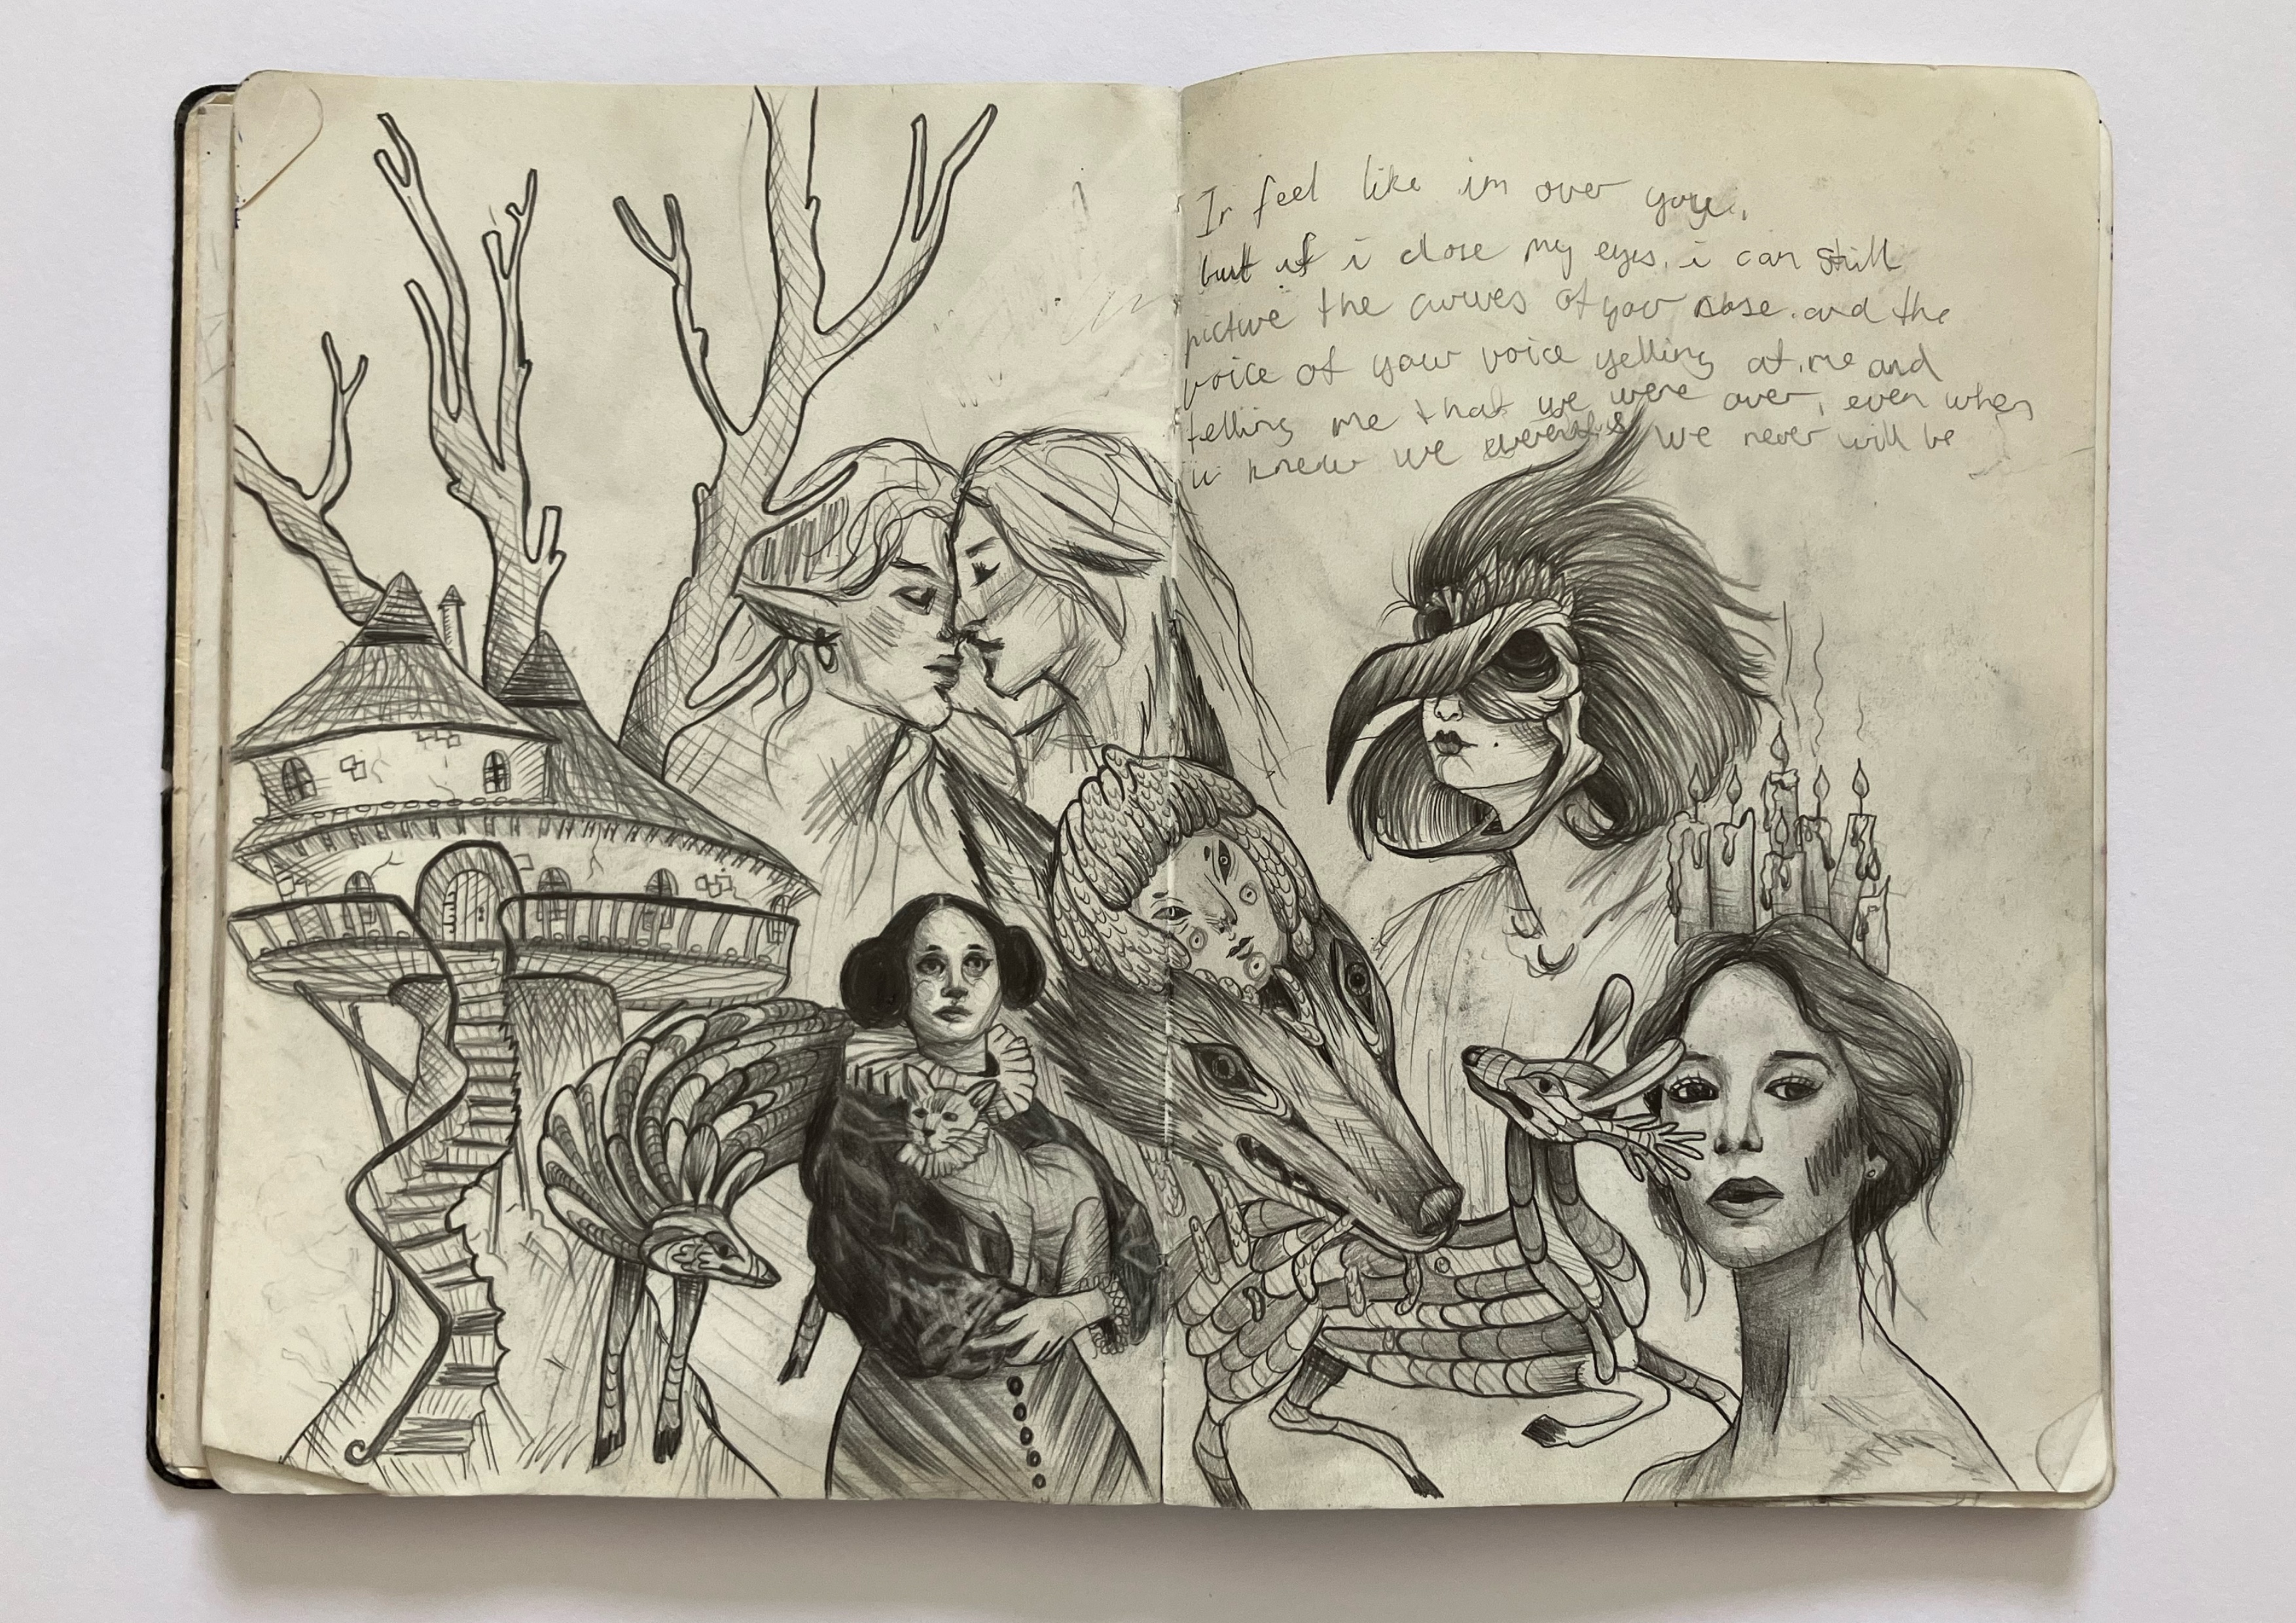 I feel like im over you,
but if i close my eyes, i can still
picture the curves of your nose. and the
voice of your voice yelling at me and
telling me that we were over, even when
i knew we we never will be